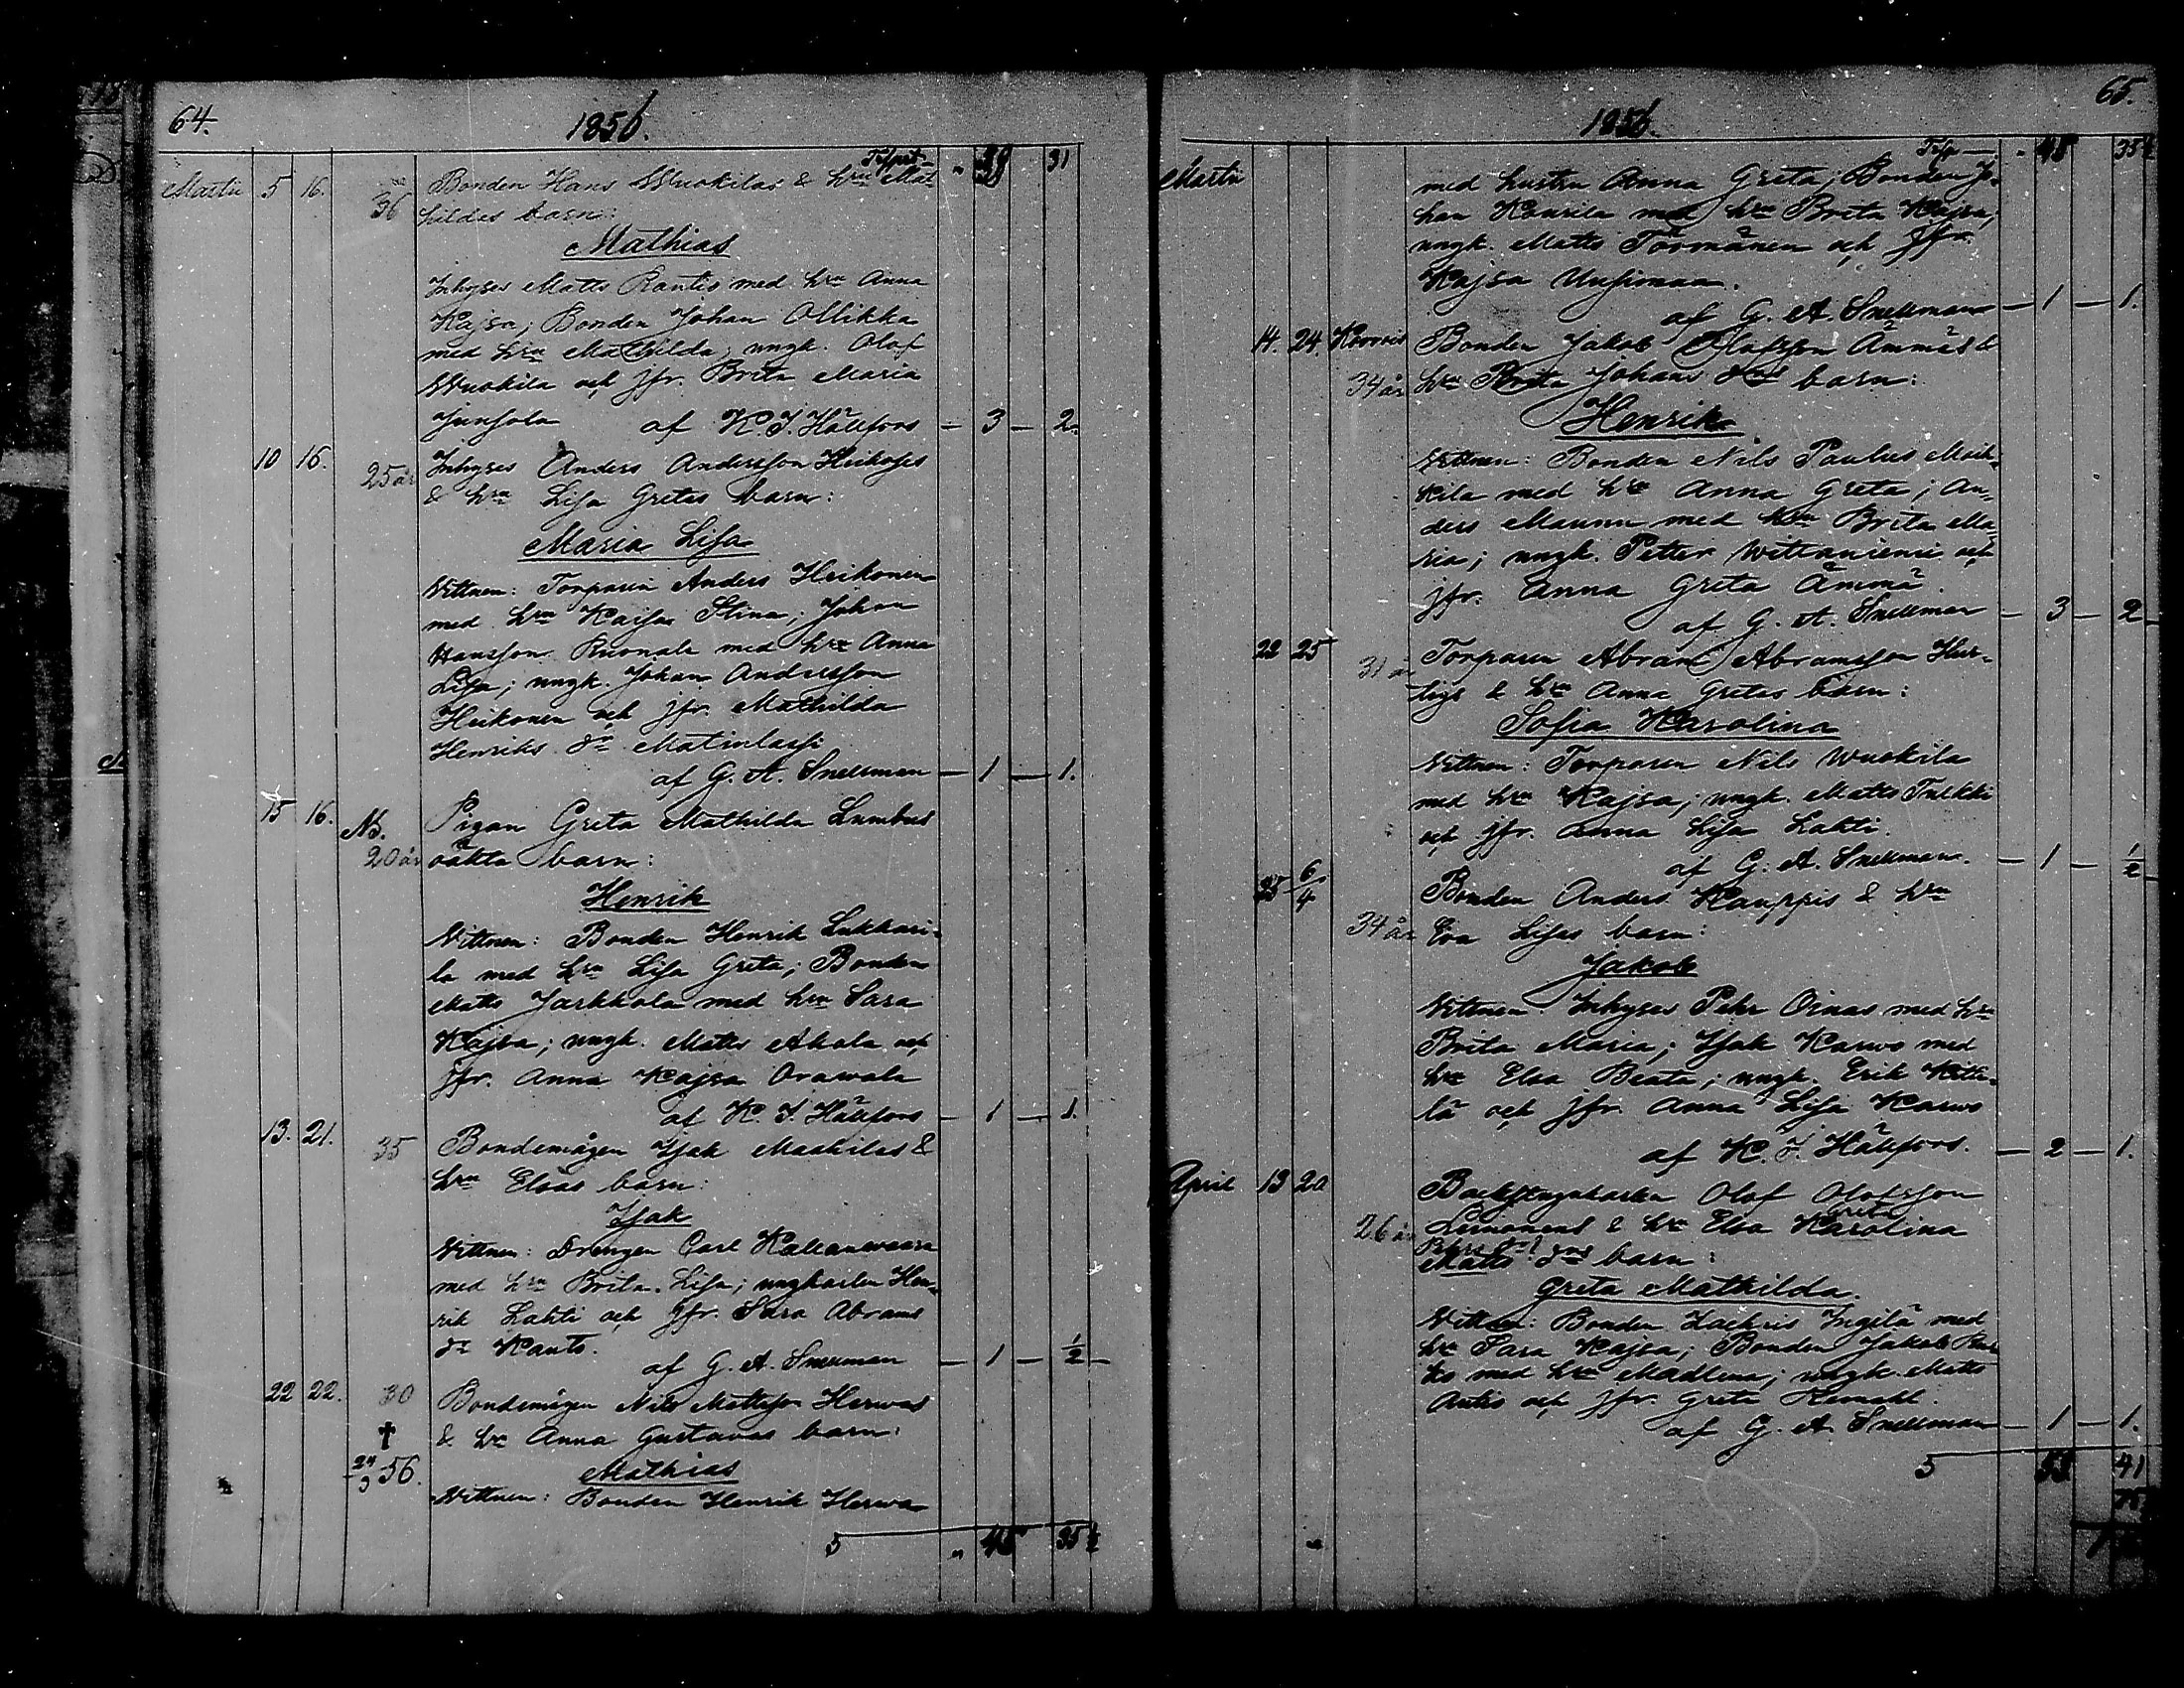 64.
1856.
Trspt - " 39 31
Martii 5 16. 36 Bonden Hans Wuokilas & hru Mat-
hildes barn:
Mathias
Inhyses Matts Rantis med hru Anna
Kajsa; Bonden Johan Ollikka
med hru Mathilda; ungk. Olof
Wuokila och jfr. Brita Maria
Junsola af K. J. Hällfors - 3 - 2.
10 16. 25 år Inhyses Anders Andersson Heikoses
& hru Lisa Gretas barn:
Maria Lisa
Vittnen: Torparen Anders Heikonen
med hru Kajsa Stina; Johan
Hansson Ruonala med hru Anna
Lisa; ungk. Johan Andersson
Heikonen och jfr. Mathilda
Henriks dr Matinlassi
af G. A. Snellman - 1 - 1.
15 16. Nb. Pigan Greta Mathilda Lumbus
20 år oäkta barn:
Henrik
Vittnen: Bonden Henrik Lukkari-
la med hru Lisa Greta; Bonden
Matts Jarkkola med hru Sara
Kajsa; ungk. Matts Ahola och
jfr. Anna Kajsa Orawala
af K. J. Hällfors - 1 - 1.
13. 21. 35 Bondemågen Isak Maskilas &
hru Elsas barn:
Isak
Vittnen: Drengen Carl Kalianwaara
med hru Brita Lisa; ungkarlen Hen-
rik Lahti och jfr. Sara Abrams
dr Kauts.
af G. A. Snellman - 1 - 1/2 -
22 22. 30 Bondemågen Nils Mattsson Herwas
† & hru Anna Gustavas barn:
24/3 56. Mathias
Vittnen: Bonden Henrik Herwa
5 " 45 35 1/2
65.
1856.
Trsp - " 45 35 1/2
Martii med hustru Anna Greta; Bonden Jo-
han Kourila med hru Brita Kajsa;
ungk. Matts Törmänen och jfr.
Kajsa Uusimaa.
af G. A. Snellman - 1 - 1.
14. 24. Korvois Bonden Jakob Olofsson Ämmäs &
34 år hru Brita Johans drs barn:
Henrik
Vittnen: Bonden Nils Paulus Moik-
kila med hru Anna Greta; An-
ders Maunu med hru Brita Ma-
ria; ungk. Petter Wittaniemi och
jfr. Anna Greta Ämmä.
af G. A. Snellman - 3 - 2
22 25 31 år Torparen Abram Abramsson Hur-
tigs & hru Anna Gretas barn:
Sofia Karolina
Vittnen: Torparen Nils Wuokila
med hru Kajsa; ungk. Matts Tulkki
och jfr. Anna Lisa Lahti.
af G. A. Snellman. - 1 - 1/2
25 6/4 Bonden Anders Kauppis & hru
34 år Eva Lisas barn:
Jakob
Vittnen Inhyses Pehr Oinas med hru
Brita Maria; Isak Karwo med
hru Elsa Beata; ungk. Erik Kitti-
lä och jfr. Anna Lisa Karwo
af K. J. Hällfors. - 2 - 1.
April 13 20 Backstugukarlen Olof Olofsson
Greta
26 år Leinonens & hru Elsa Karolina
Pehrs dr! drs
Matts dr barn:
Greta Mathilda.
Vittnen: Bonden Zachris Ingilä med
hru Sara Kajsa; Bonden Jakob
ko med hru Madlena; ungk. Matts
Antis och jfr. Greta Kemahl.
af G. A. Snellman - 1 - 1.
5 53 41